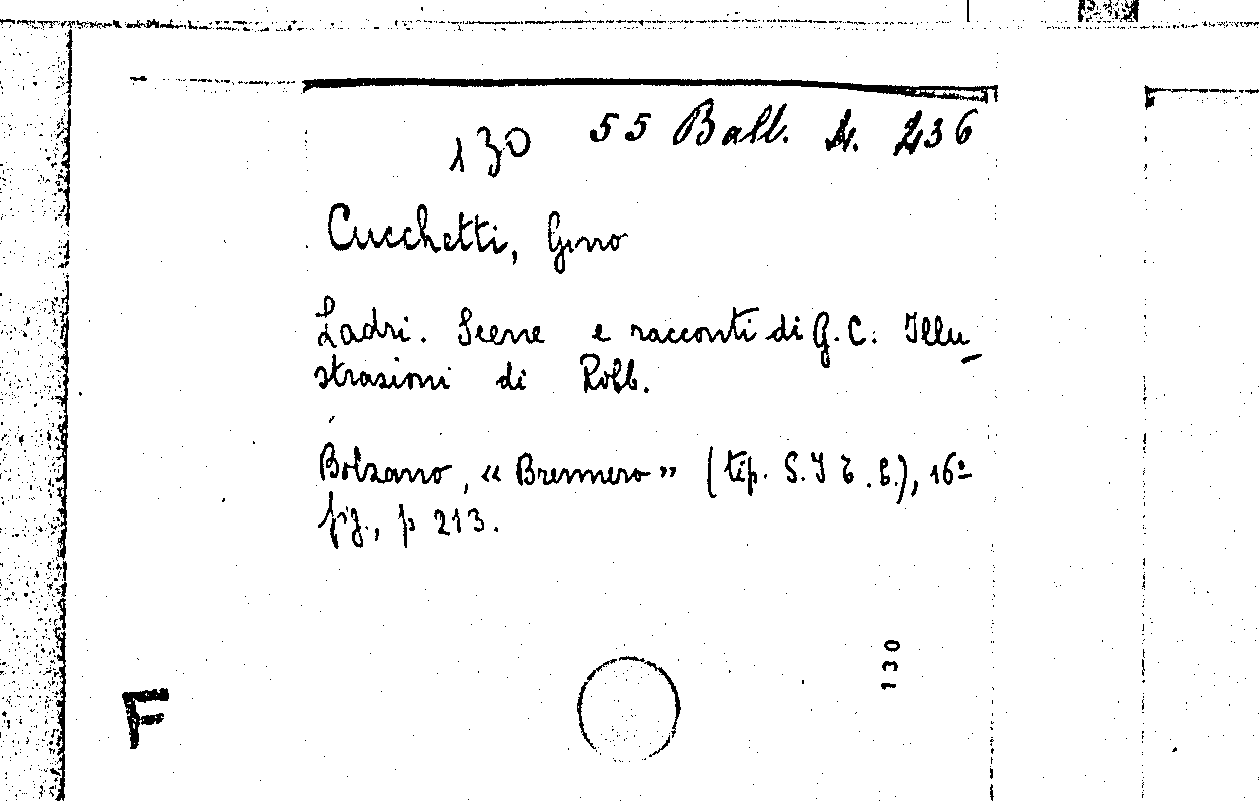 130 55 Ball. A. 236
Cucchetti, Gino
Ladri. Scene e racconti di G. C. Illu-
strazioni di Robb.
Bolzano, « Brennero » (tip. S.I.T.E.), 16º
fig., p 213.
130
F